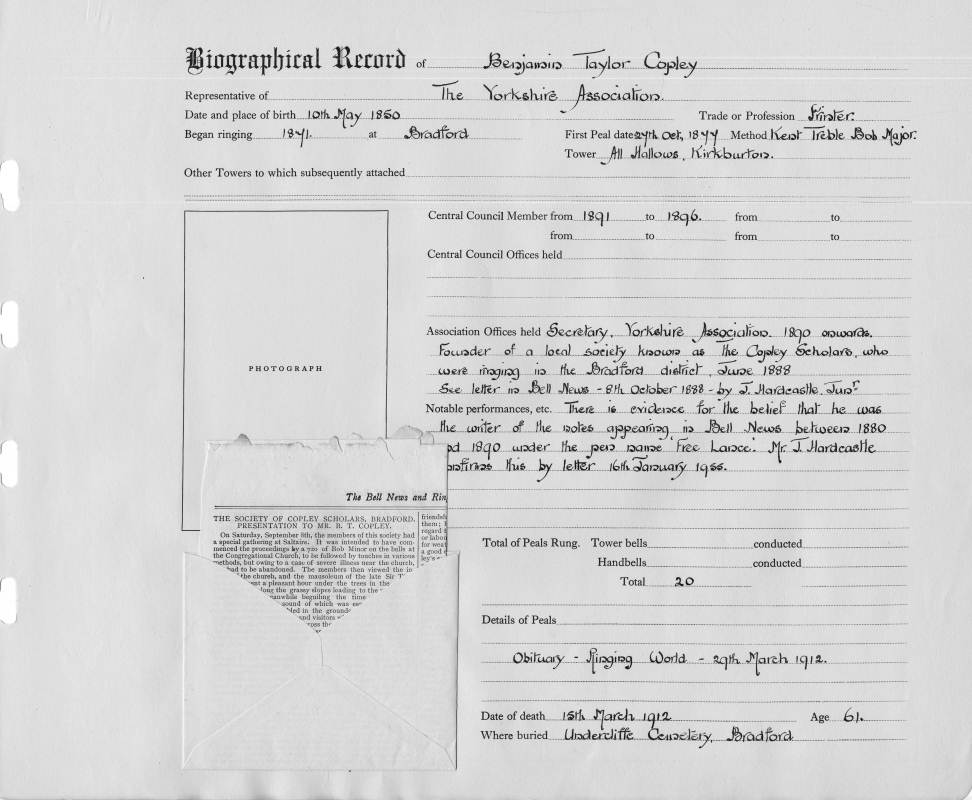 Biographical Record of Benjamin Taylor Copley
Representative of The Yorkshire Association.
Date and place of birth 10th May 1850 Trade or Profession Printer.
Began ringing 1871. at Bradford First Peal date 27th Oct, 1877 Method Kent Treble Bob Major.
Tower All Hallows, Kirkburton.
Other Towers to which subsequently attached
Central Council Member from 1891 to 1896. from to
from to from to
Central Council Offices held
PHOTOGRAPH
Association Offices held Secretary, Yorkshire Association. 1890 onwards.
Founder of a local society known as The Copley Scholars, who
were ringing in the Bradford district, June 1888
See letter in Bell News - 8th October 1888 - by J. Hardcastle, Junr.
Notable performances, etc. There is evidence for the belief that he was
the writer of the notes appearing in Bell News between 1880
nd 1890 under the pen name 'Free Lance'. Mr. J. Hardcastle
nfirms this by letter 16th January 1955.
The Bell News and Rin
THE SOCIETY OF COPLEY SCHOLARS, BRADFORD.
PRESENTATION TO MR. B. T. COPLEY.
On Saturday, September 8th, the members of this society had
a special gathering at Saltaire. It was intended to have com-
menced the proceedings by a 720 of Bob Minor on the bells at
the Congregational Church, to be followed by touches in various
methods, but owing to a case of severe illness near the church,
had to be abandoned. The members then viewed the in
the church, and the mausoleum of the late Sir T
ent a pleasant hour under the trees in the
long the grassy slopes leading to the
meanwhile beguiling the time
sound of which was
led in the ground
and visitors
ross the
friends
them;
regard
or labou
for weat
a good
ley's
Total of Peals Rung. Tower bells conducted
Handbells conducted
Total 20
Details of Peals
Obituary - Ringing World - 29th March 1912.
Date of death 15th March 1912 Age 61.
Where buried Undercliffe Cemetery, Bradford